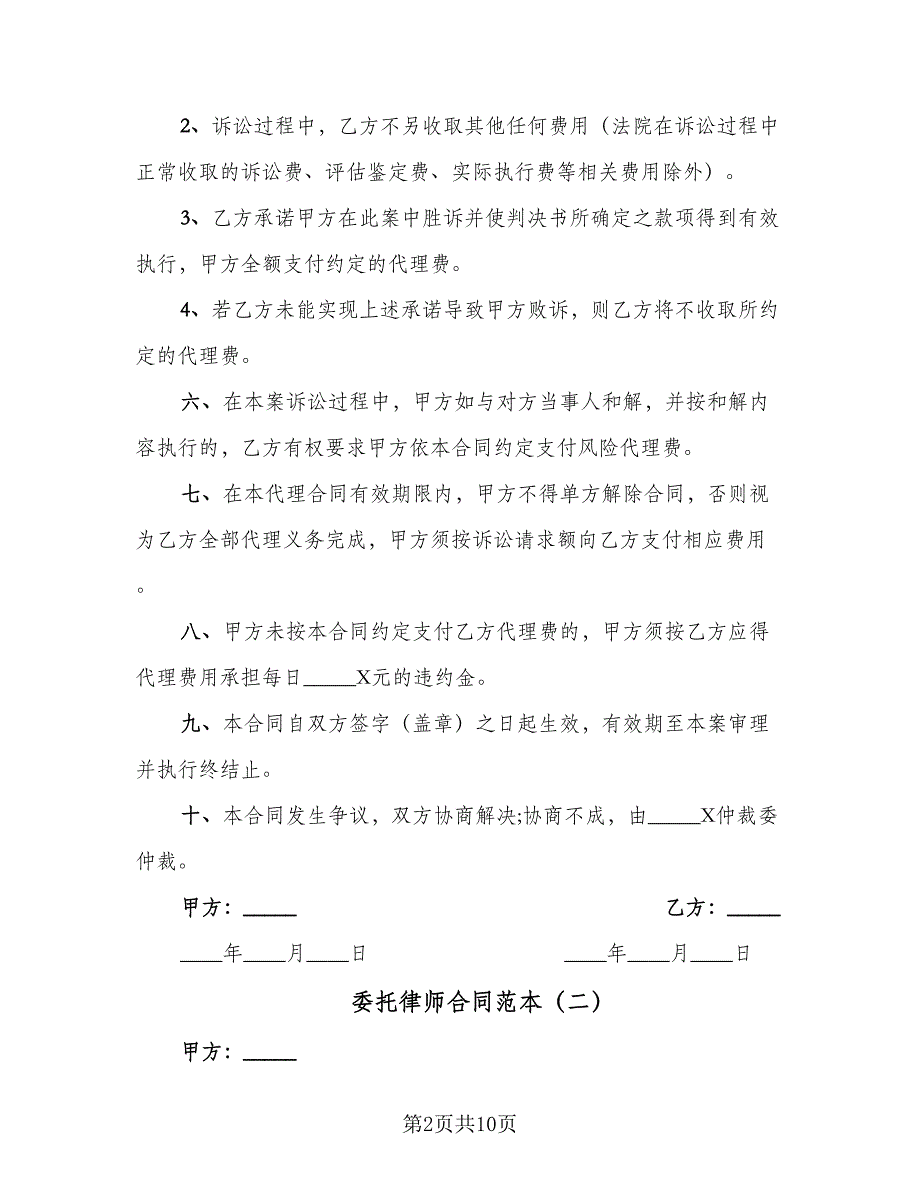 2、诉讼过程中，乙方不另收取其他任何费用（法院在诉讼过程中
正常收取的诉讼费、评估鉴定费、实际执行费等相关费用除外）。
3、乙方承诺甲方在此案中胜诉并使判决书所确定之款项得到有效
执行，甲方全额支付约定的代理费。
4、若乙方未能实现上述承诺导致甲方败诉，则乙方将不收取所约
定的代理费。
六、在本案诉讼过程中，甲方如与对方当事人和解，并按和解内
容执行的，乙方有权要求甲方依本合同约定支付风险代理费。
七、在本代理合同有效期限内，甲方不得单方解除合同，否则视
为乙方全部代理义务完成，甲方须按诉讼请求额向乙方支付相应费用
。
八、甲方未按本合同约定支付乙方代理费的，甲方须按乙方应得
代理费用承担每日_____X元的违约金。
九、本合同自双方签字（盖章）之日起生效，有效期至本案审理
并执行终结止。
十、本合同发生争议，双方协商解决;协商不成，由_____X仲裁委
仲裁。
甲方：_____ 乙方：_____
____年____月____日 ____年____月____日
委托律师合同范本（二）
甲方：_____
第2页共10页